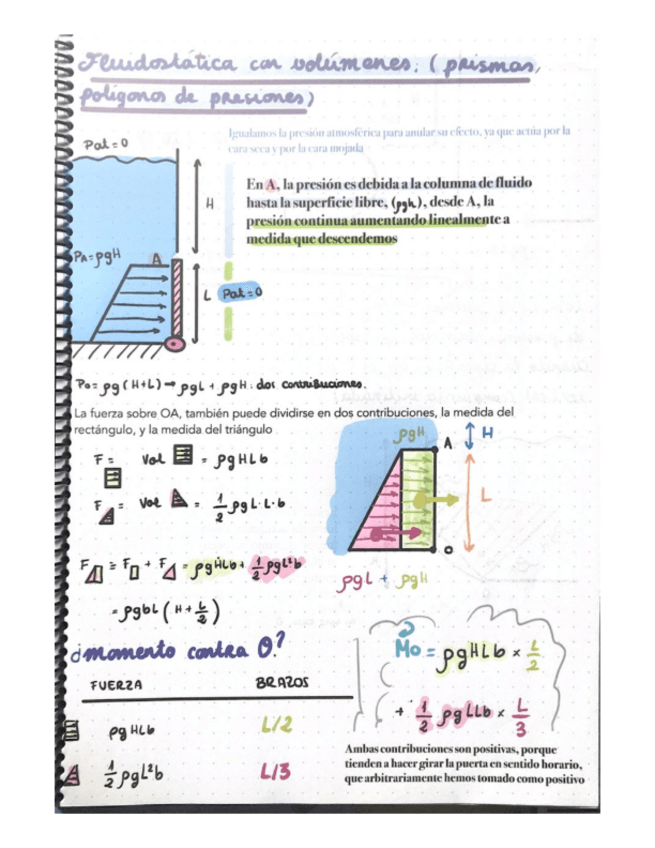 Fluidostática con volúmenes: (prismas,
polígonos de presiones)
Igualamos la presión atmosférica para anular su efecto, ya que actúa por la
cara seca y por la cara mojada
Pat=0
H
En A, la presión es debida a la columna de fluido
hasta la superficie libre, (ρgh), desde A, la
presión continua aumentando linealmente a
medida que descendemos
PA=ρgH
A
L
Pat=0
Po= ρg(H+L) → ρgL + ρgH: dos contribuciones.
La fuerza sobre OA, también puede dividirse en dos contribuciones, la medida del
rectángulo, y la medida del triángulo
F = Vol = ρgHLb
F = Vol = 1/2 ρgL·L·b
ρgH
A
H
L
O
ρgL + ρgH
F = F + F = ρgHLb + 1/2 ρgL²b
= ρgbL (H + L/2)
¿momento contra O?
FUERZA BRAZOS
ρgHLb L/2
1/2 ρgL²b L/3
Mo = ρgHLb × L/2
+ 1/2 ρgLLb × L/3
Ambas contribuciones son positivas, porque
tienden a hacer girar la puerta en sentido horario,
que arbitrariamente hemos tomado como positivo